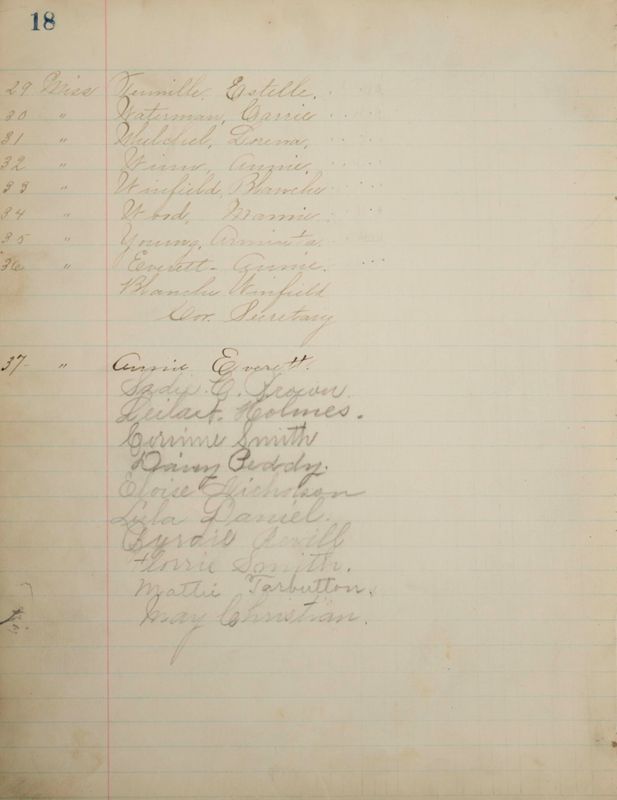 18
29 Miss Tennille, Estelle.
30 " Waterman, Carrie
31 " Whelchel, Lorena,
32 " Winn, Annie,
33 " Winfield, Blanche
34 " Wood, Mamie.
35 " Young, Arminta.
36 " Everett - Annie.
Blanche Winfield
Cor. Secretary
37 " Annie Everett.
Sadie G. Brown.
Holmes.
Corrine Smith
Daisy Peddy.
Eloise Nicholson
Lula Daniel.
Florrie Smith.
Mattie Tarbutton.
May Christian.